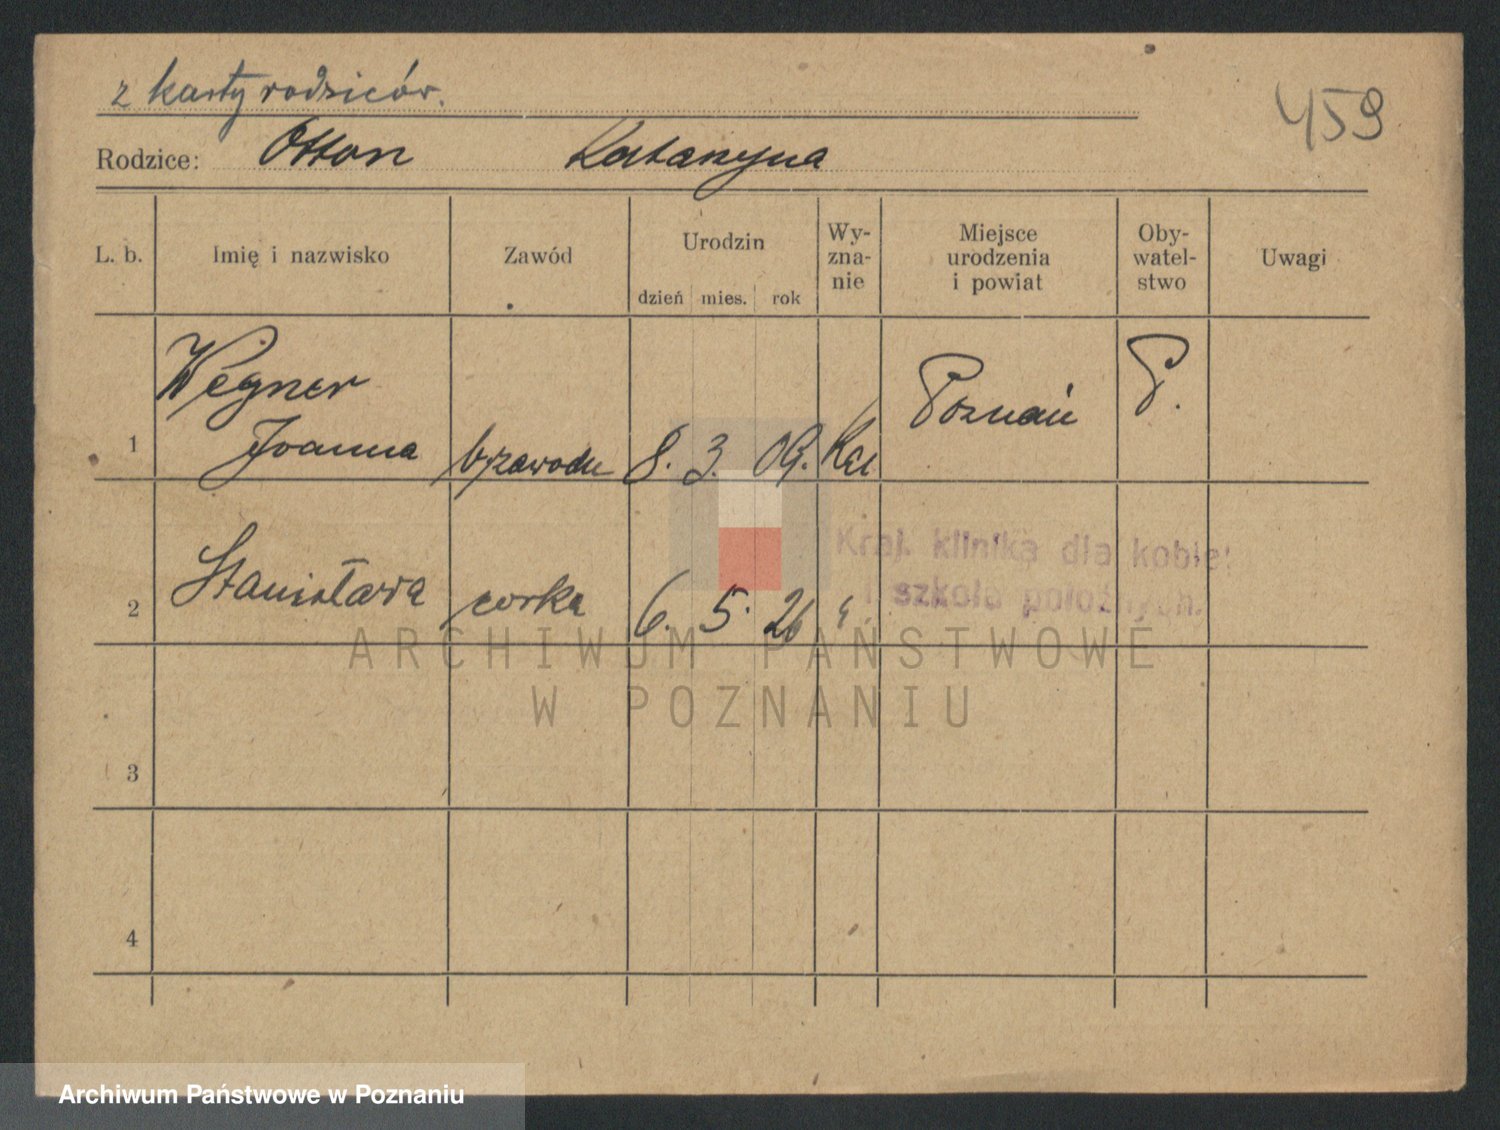 z karty rodziców.
459
Rodzice: Otton Katarzyna
L. b. Imię i nazwisko Zawód Urodzin dzień mies. rok Wy-zna-nie Miejsce urodzenia i powiat Oby-watel-stwo Uwagi
Wegner
1 Joanna b/zawodu 8. 3. 09. Kat Poznań P.
Kraj. klinika dla kobiet
i szkoła położnych.
2 Stanisława corka 6. 5. 26 "
3
4
ARCHIWUM PAŃSTWOWE
W POZNANIU
Archiwum Państwowe w Poznaniu